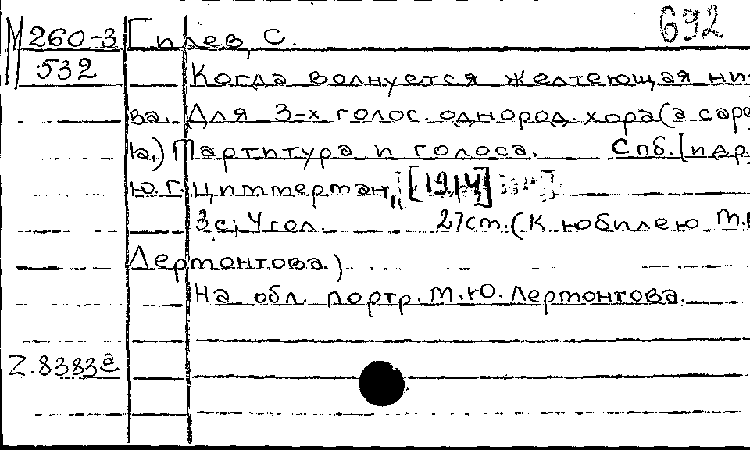 М 260-3 Гилев, С. 692
532 Когда волнуется желтеющая ни
ва. Для 3-х голос. однород. хора (a cape
la.) Партитура и голоса. Спб. [изд.]
Ю.Г. Циммерман, [1914]
3 с; 4 гол. 27 cm. (К юбилею М.Ю.
Лермонтова.)
На обл. портр. М.Ю. Лермонтова.
Z. 8383 а